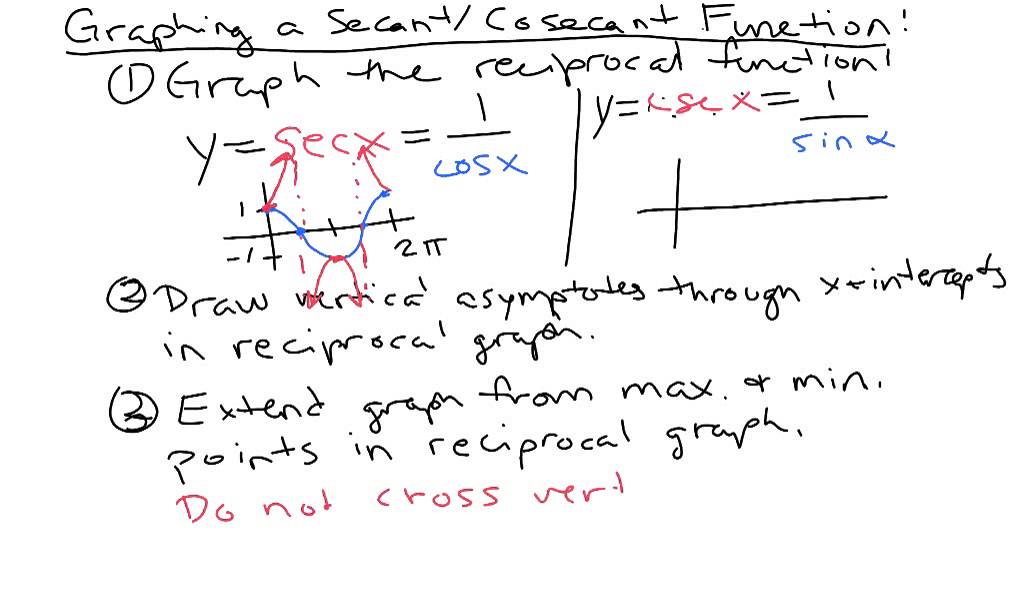 Graphing a Secant/Cosecant Function!
① Graph the reciprocal function!
y = sec x = 1/cos x
y = csc x = 1/sin x
1
-1
2π
② Draw vertical asymptotes through x-intercepts
in reciprocal graph.
③ Extend graph from max. & min.
points in reciprocal graph.
Do not cross vert